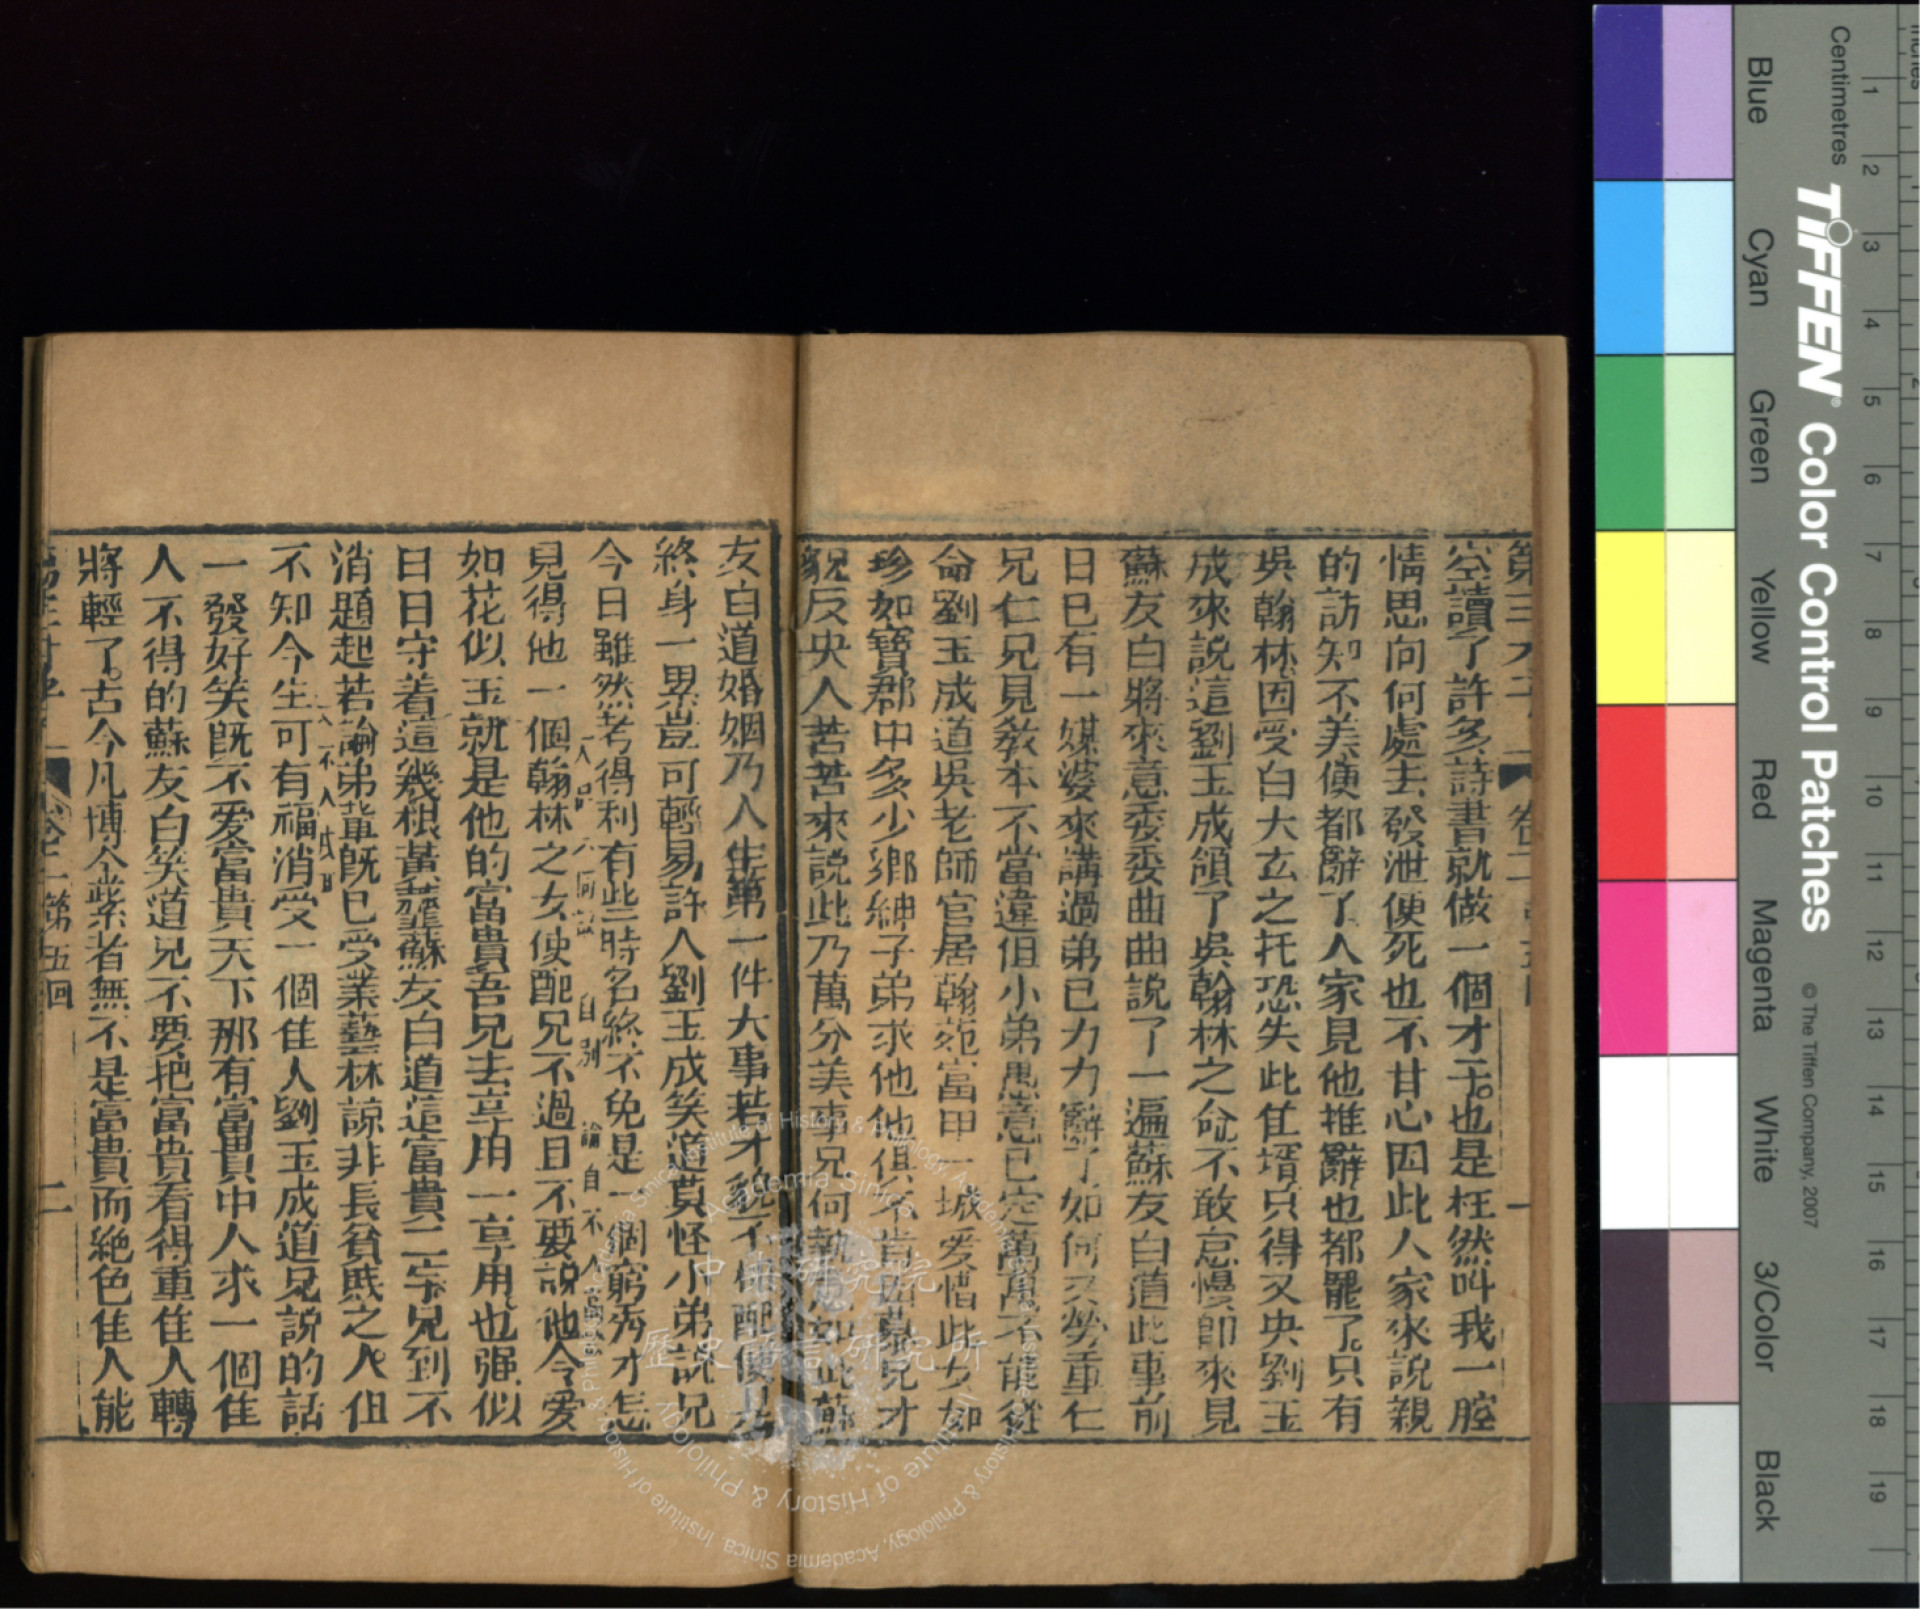 空讀了許多詩書就做一個才子。也是枉然叫我一腔
情思向何處去發泄便死也不甘心因此人家來說親
的訪知不美便都辭了人家見他推辭也都罷了。只有
吳翰林因受白大玄之托恐失此佳壻只得又央劉玉
成來說這劉玉成領了吳翰林之命不敢怠慢卽來見
蘇友白將來意委委曲曲說了一遍蘇友白道此事前
日已有一媒婆來講過弟已力力辭了如何又勞重仁
兄仁兄見教本不當違但小弟愚意已定萬萬不能從
命劉玉成道吳老師官居翰苑富甲一城爱惜此女如
珍如寶郡中多少鄉紳子弟求他他俱不肯因慕兄才
貌反央人苦苦來說此乃萬分美事兄何執意如此蘇
友白道婚姻乃人生第一件大事若才貌不相配便是
終身一累豈可輕易許人劉玉成笑道莫怪小弟說兄
今日雖然考得利有些時名終不免是一個窮秀才怎
人品 何 自別 論自不人
見得他一個翰林之女便配兄不過且不要說他令爱
如花似玉就是他的富貴吾兄去享用一享用。也强似
日日守着這幾根黃虀蘇友白道這富貴二字兄到不
消題起若論弟輩旣已受業藝林諒非長貧賤之人。但
入不入
不知今生可有福消受一個佳人劉玉成道兄說的話
一發好笑旣不爱富貴天下那有富貴中人求一個佳
人不得的蘇友白笑道兄不要把富貴看得重佳人轉
將輕了。古今凡博金紫者無不是富貴而絕色佳人能
卷二 第五回
二
中央研究院
歷史語言研究所
Academia Sinica
Institute of History & Philology, Academia Sinica
Centimetres
TIFFEN® Color Control Patches
© The Tiffen Company, 2007
Blue
Cyan
Green
Yellow
Red
Magenta
White
3/Color
Black
1 2 3 4 5 6 7 8 9 10 11 12 13 14 15 16 17 18 19